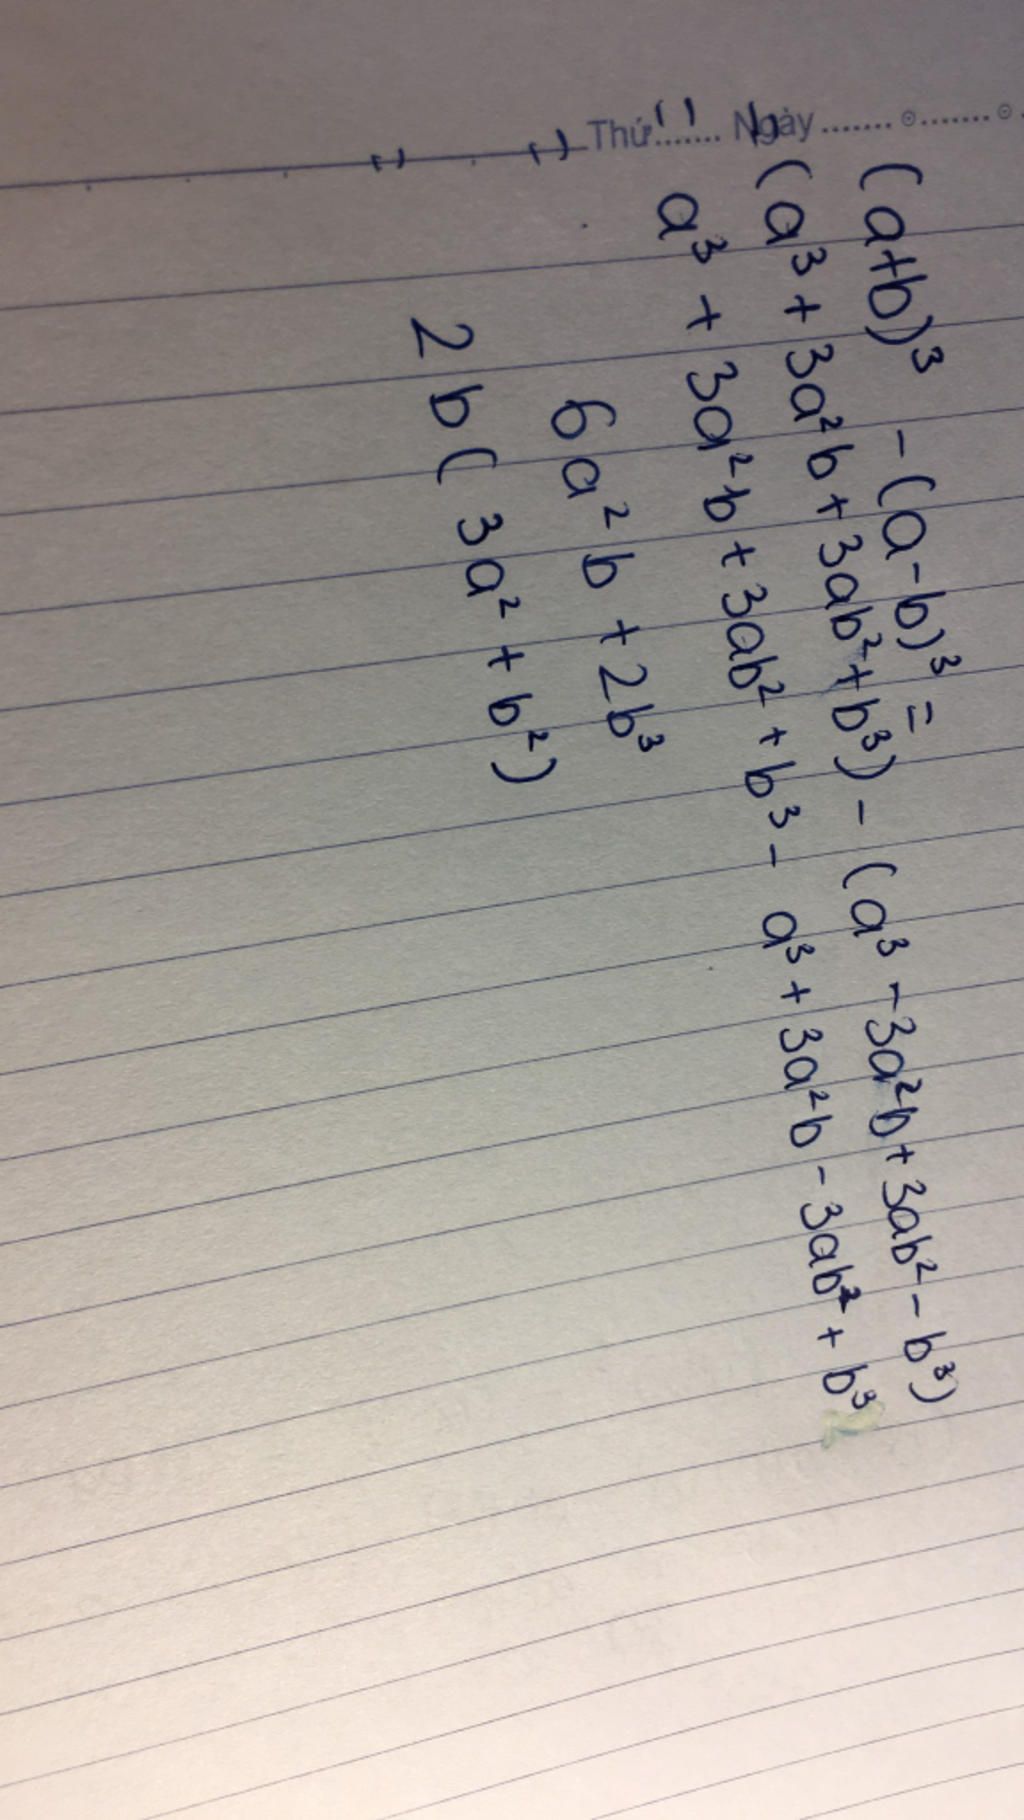 Thứ....... Ngày.......
(a+b)³ - (a-b)³ =
= (a³ + 3a²b + 3ab² + b³) - (a³ - 3a²b + 3ab² - b³)
= a³ + 3a²b + 3ab² + b³ - a³ + 3a²b - 3ab² + b³
= 6a²b + 2b³
= 2b(3a² + b²)